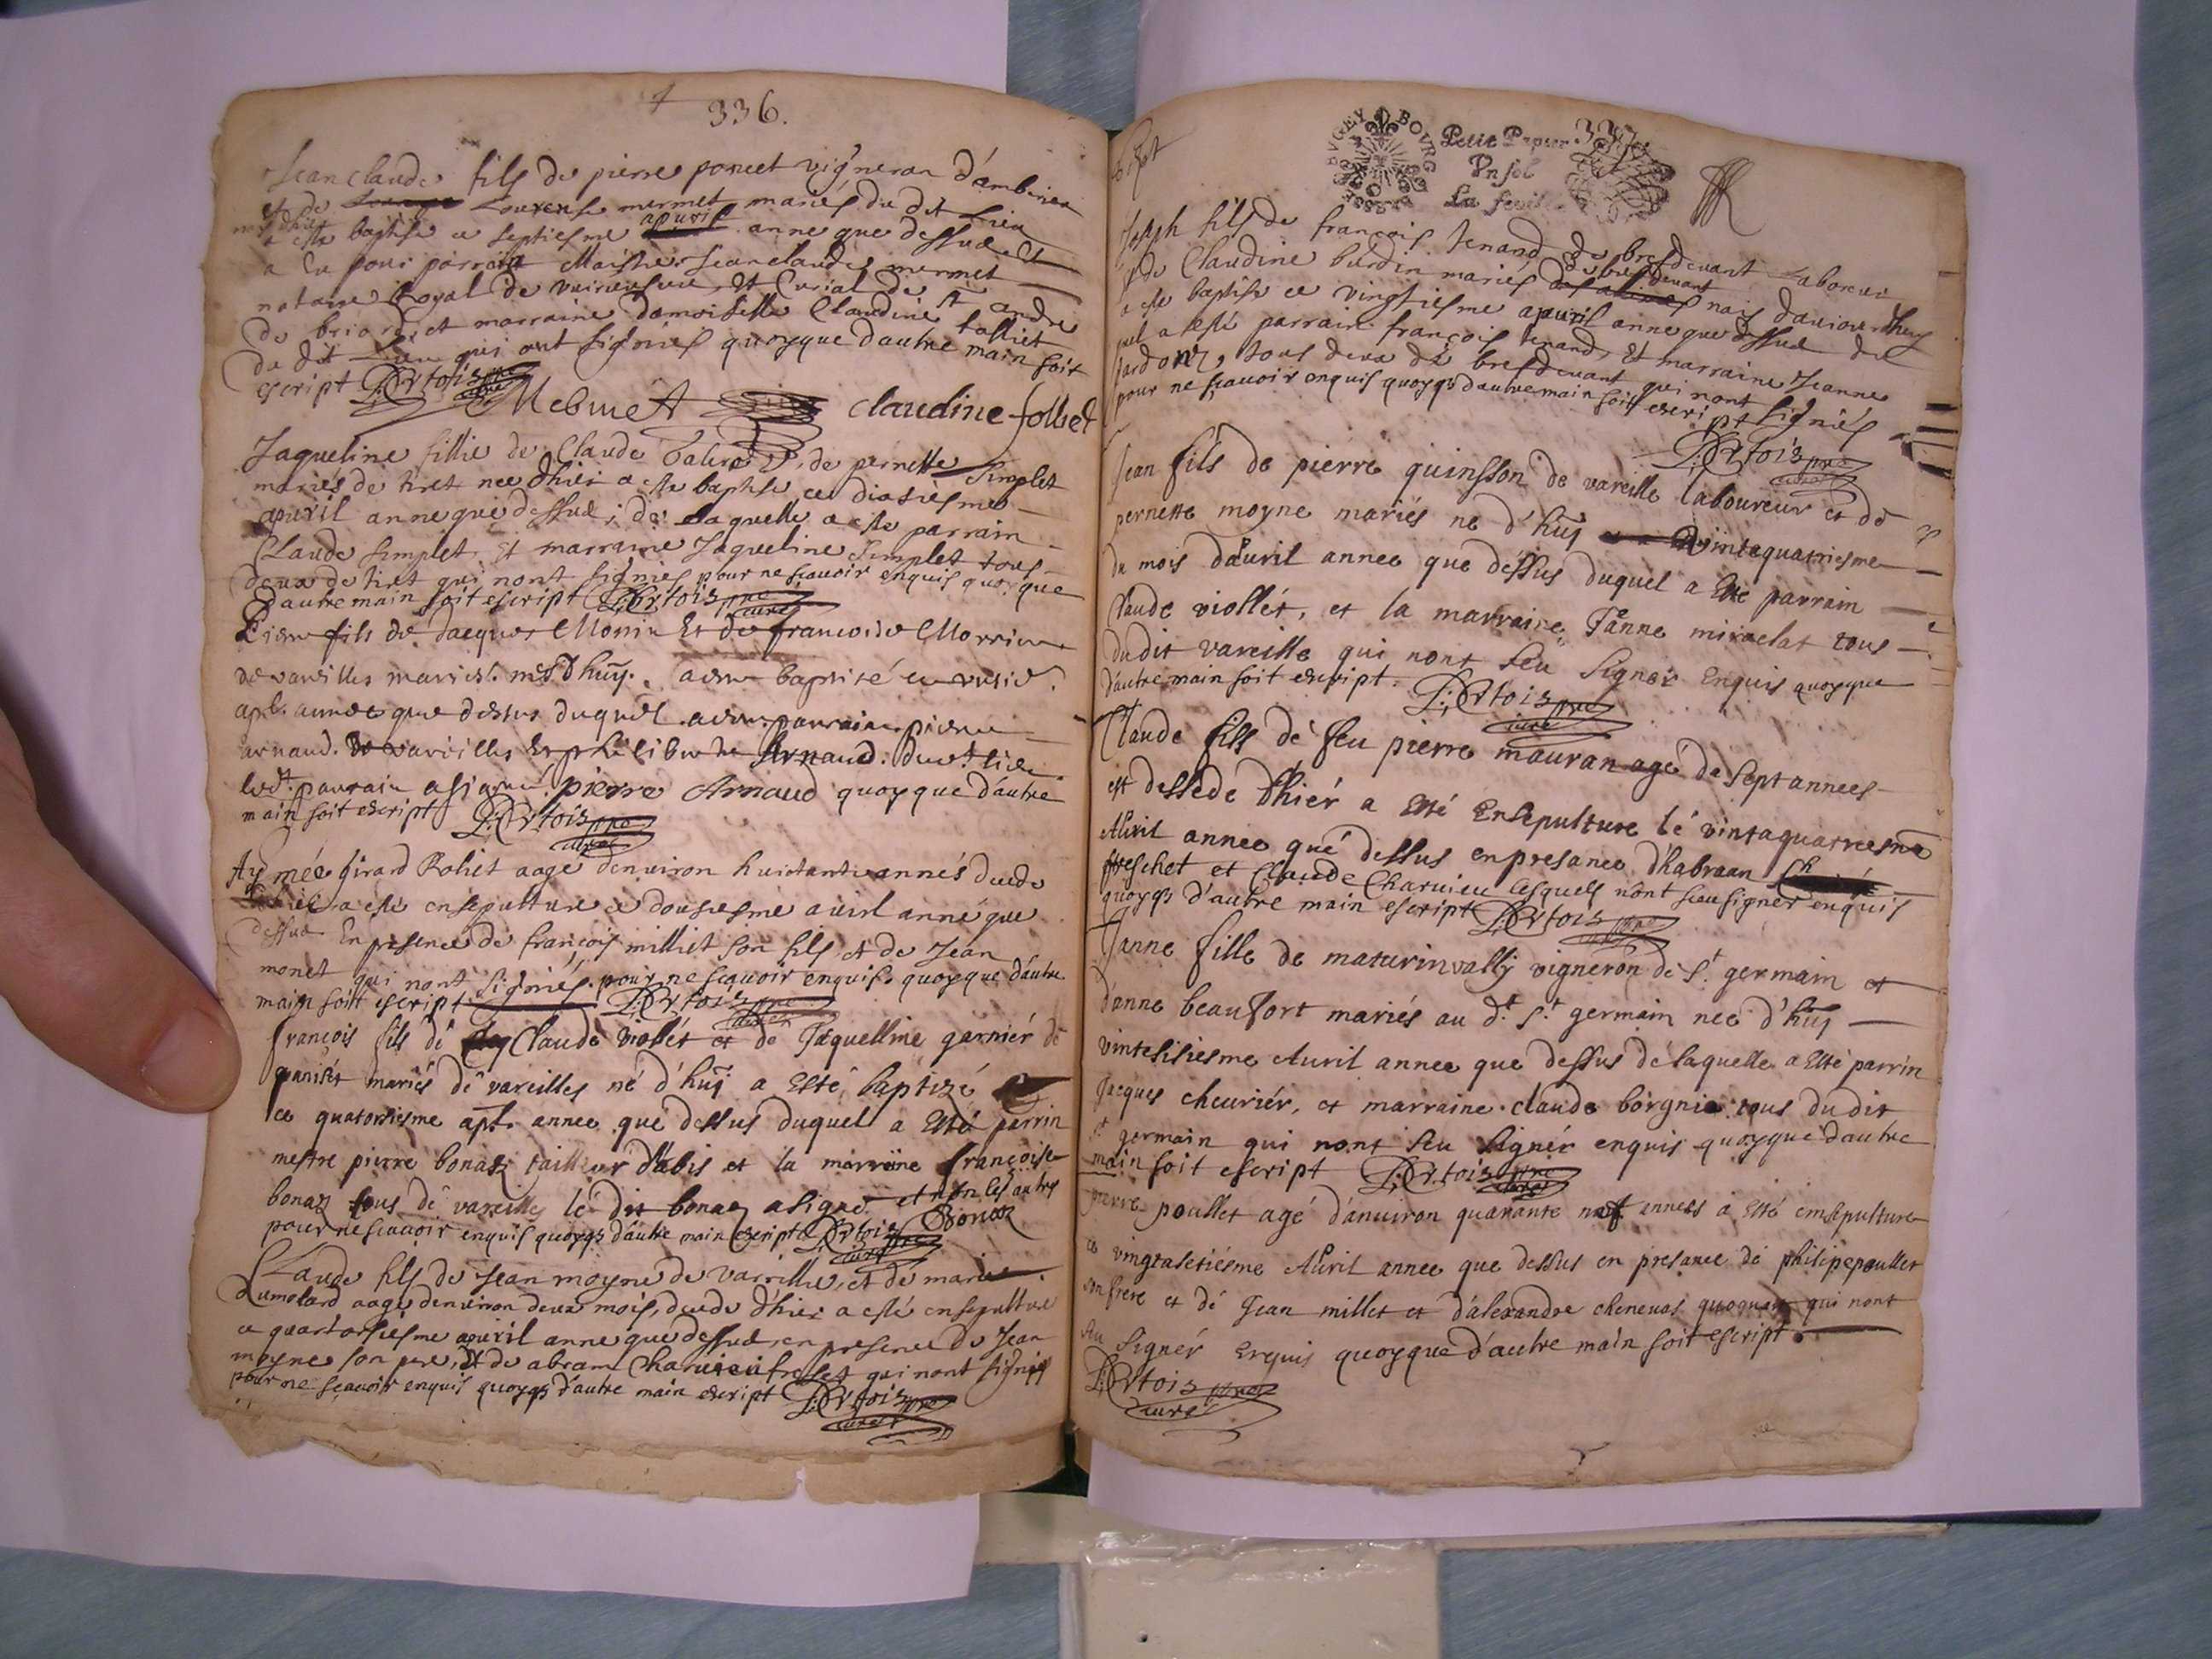 336.
Jean claude fils de pierre poncet vigneron d'amberieu
et de Lourense mermet mariés du dit Lieu
a este baptise ce septiesme apuril anne que dessus Et
a Eu pour parrain Maistre Jean claude mermet
notaire Royal de Et Curial de st andre
de briord et marraine damoiselle Claudine folliet
du dit Lieu qui ont signés quoyque dautre main soit
escript P: Ortois pre curé
Mermet claudine folliet
Jaqueline fillie de Claude et de pernette Simplet
mariés de tiret nee d'hier a este baptise ce disiesme
apuril anne que dessus; de Laquelle a este parrain
Claude simplet Et marraine Jaqueline Simplet tous
deux de tiret qui nont signés pour ne scavoir enquis quoyque
d'autre main soit escript P: Ortois pre curé
Pierre fils de Jacques Monin Et de francoise Morrier
de vareilles mariés. nes d'huy. a este baptisé
apl. annee que dessus duquel a este parrain pierre
arnaud. de vareilles Et philiberte Arnaud. dud.t lieu
led.t parrain a signé. pierre Arnaud quoyque d'autre
main soit escript P: Ortois pre curé
Aymée girard Roliet aage denviron huictante annés
a esté ensepulture ce dousiesme avril anné que
dessus En presence de françois milliet son fils et de Jean
monet qui nont signés pour ne scavoir enquis quoyque d'autre
main soit escript P: Ortois pre curé
françois fils dé Claude violet et de Jaquelline garnier
mariés dé vareilles né d'huy a Esté baptizé
ce quatorsiesme apl. annee qué dessus duquel a Esté parrin
mestre pierre bonaz tailleur d'abis et la marraine françoise
bonaz tous dé vareilles lé dit bonaz a signé et non les autres
pour ne scavoir enquis quoyqs d'autre main escript P: Ortois pre curé Bonaz
Claude fils de Jean moyne de vareille, et de marie
Dumolard aagé denviron deux mois, decede d'hier a esté ensepulture
ce quatorsiesme apuril anne que dessus, en presence de Jean
moyne son pere, Et de abram Charvieu freslet qui nont signés
pour ne scavoir enquis quoyqs d'autre main escript P: Ortois pre curé
BVGEY BOVRG
Petit Papier 337
Vn sol
La feuil
Joseph fils de françois tenand de bresdevant Laboreur
et de Claudine burdin mariés de bresdevant nais d'auiourdhuy
a este baptise ce vingtiesme apuril anne que dessus du
quel a esté parrain françois tenand, Et marraine Jeanne
Jardon, tous deux de bresdevant qui nont signés
pour ne scavoir enquis quoyqs dautre main soit escript
P: Ortois pre curé
Jean fils de pierre quinsson de vareille laboureur et de
pernette moyne mariés ne d'huy vintequatriesme
du mois dauril annee que dessus duquel a Esté parrain
Claude viollét, et la marraine Janne miraclat tous
dudit vareille qui nont seu signer Enquis quoyque
d'autre main soit escript. P: Ortois pre curé
Claude fils dé feu pierre mauran agé de sept annees
est dessede d'hiér a Esté Ensepulture lé vintaquatriesme
Auril annee qué dessus en presance d'habraan
freschet et Claude Charvieu lesquels nont sceu signer enquis
quoyqs d'autre main escript P: Ortois pre
Janne fille de maturin vally vignerón dé s.t germain et
d'anne beaufort mariés au d.t s.t germain nee d'huy
vintesisiesme Auril annee que dessus dé laquelle a Esté parrin
Jacques cheuriér, et marraine claude borgnie tous dudit
st germain qui nont seu signér enquis quoyque d'autre
main soit escript P: Ortois pre curé
pierre poullet agé d'anuiron quarante neuf annees a Esté ensepulture
ce vingtasetiésme Auril annee que dessus en presance dé philipe poullet
son frere et dé Jean millet et d'alexandre chenevas qui nont
seu signér Enquis quoyque d'autre main soit escript.
P: Ortois pre curé